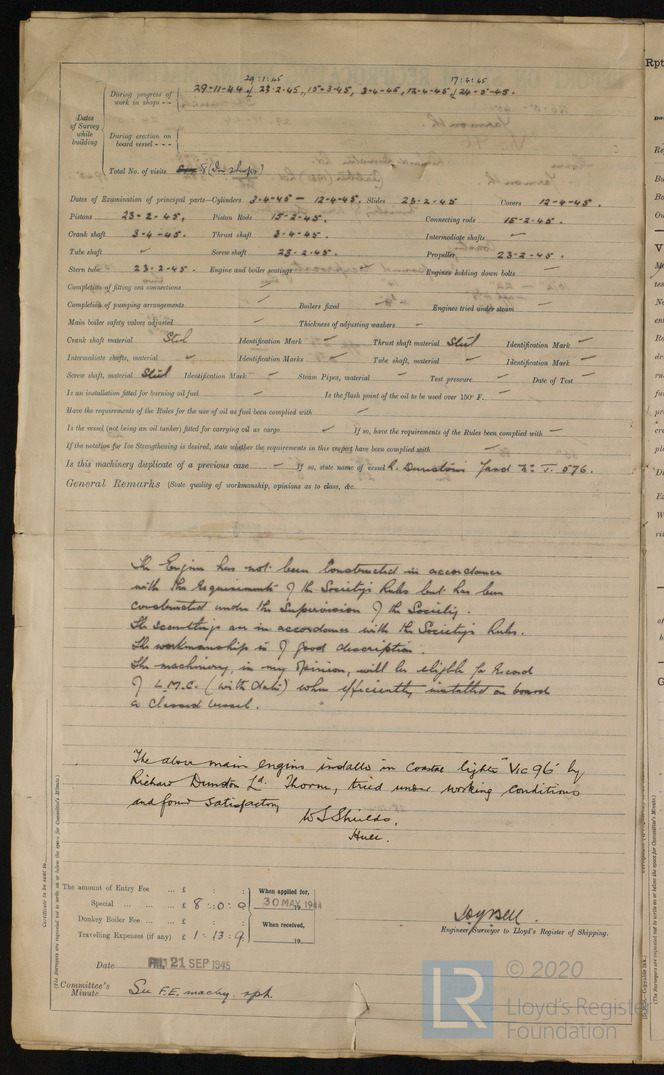 29:1:45 17:4:45
During progress of work in shops - - 29-11-44 & 23-2-45, 15-3-45, 3-4-45, 12-4-45 & 24-5-45.
Dates of Survey while building
During erection on board vessel - - -
Total No. of visits 8 (In shops)
Dates of Examination of principal parts—Cylinders 3-4-45 — 12-4-45. Slides 23-2-45 Covers 12-4-45.
Pistons 23-2-45, Piston Rods 15-2-45. Connecting rods 15-2-45.
Crank shaft 3-4-45. Thrust shaft 3-4-45. Intermediate shafts ✓
Tube shaft ✓ Screw shaft 23-2-45. Propeller 23-2-45.
Stern tube 23-2-45. Engine and boiler seatings Engines holding down bolts ✓
Completion of fitting sea connections
Completion of pumping arrangements ✓ Boilers fixed Engines tried under steam
Main boiler safety valves adjusted Thickness of adjusting washers ✓
Crank shaft material Steel Identification Mark ✓ Thrust shaft material Steel Identification Mark ✓
Intermediate shafts, material ✓ Identification Marks ✓ Tube shaft, material ✓ Identification Mark ✓
Screw shaft, material Steel Identification Mark ✓ Steam Pipes, material ✓ Test pressure ✓ Date of Test ✓
Is an installation fitted for burning oil fuel ✓ Is the flash point of the oil to be used over 150° F. ✓
Have the requirements of the Rules for the use of oil as fuel been complied with ✓
Is the vessel (not being an oil tanker) fitted for carrying oil as cargo ✓ If so, have the requirements of the Rules been complied with ✓
If the notation for Ice Strengthening is desired, state whether the requirements in this respect have been complied with ✓
Is this machinery duplicate of a previous case ✓ If so, state name of vessel R. Dunston's Yard No. T. 576.
General Remarks (State quality of workmanship, opinions as to class, &c.
The Engine has not been Constructed in accordance
with the requirements of the Society's Rules but has been
constructed under the Supervision of the Society.
The scantlings are in accordance with the Society's Rules.
The workmanship is of good description.
The machinery, in my opinion, will be eligible for record
of L.M.C. (with date) when efficiently installed on board
a classed vessel.
The above main engine installed in Coastal lighter "Vic 96" by
Richard Dunston Ld. Thorne, tried under working conditions
and found satisfactory
W S Shields,
Hull.
The amount of Entry Fee ... £ : :
When applied for,
Special ... ... £ 8 : 0 : 0
30 MAY 1944
Donkey Boiler Fee ... £ : :
When received,
Travelling Expenses (if any) £ 1 : 13 : 9
19
Engineer Surveyor to Lloyd's Register of Shipping.
Date FRI. 21 SEP 1945
Committee's Minute See F.E. machy. rpt.
Certificate to be sent to
(The Surveyors are requested not to write on or below the space for Committee's Minute.)
Rpt
© 2020
LR Lloyd's Register
Foundation